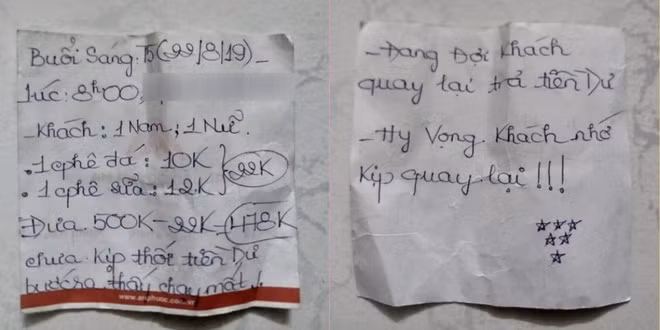 Buổi Sáng. T5 (22/8/19) -
lúc: 8h00,
- Khách: 1 Nam; 1 Nữ.
. 1 cphê đá: 10K
. 1 cphê sữa: 12K } 22K
Đưa 500K - 22K = 478K
chưa kịp thối tiền Dư
bước ra thấy chạy mất!
www.anphuoc.com.vn
- Đang Đợi Khách
quay lại trả tiền Dư
- Hy Vọng Khách nhớ
Kịp quay lại!!!